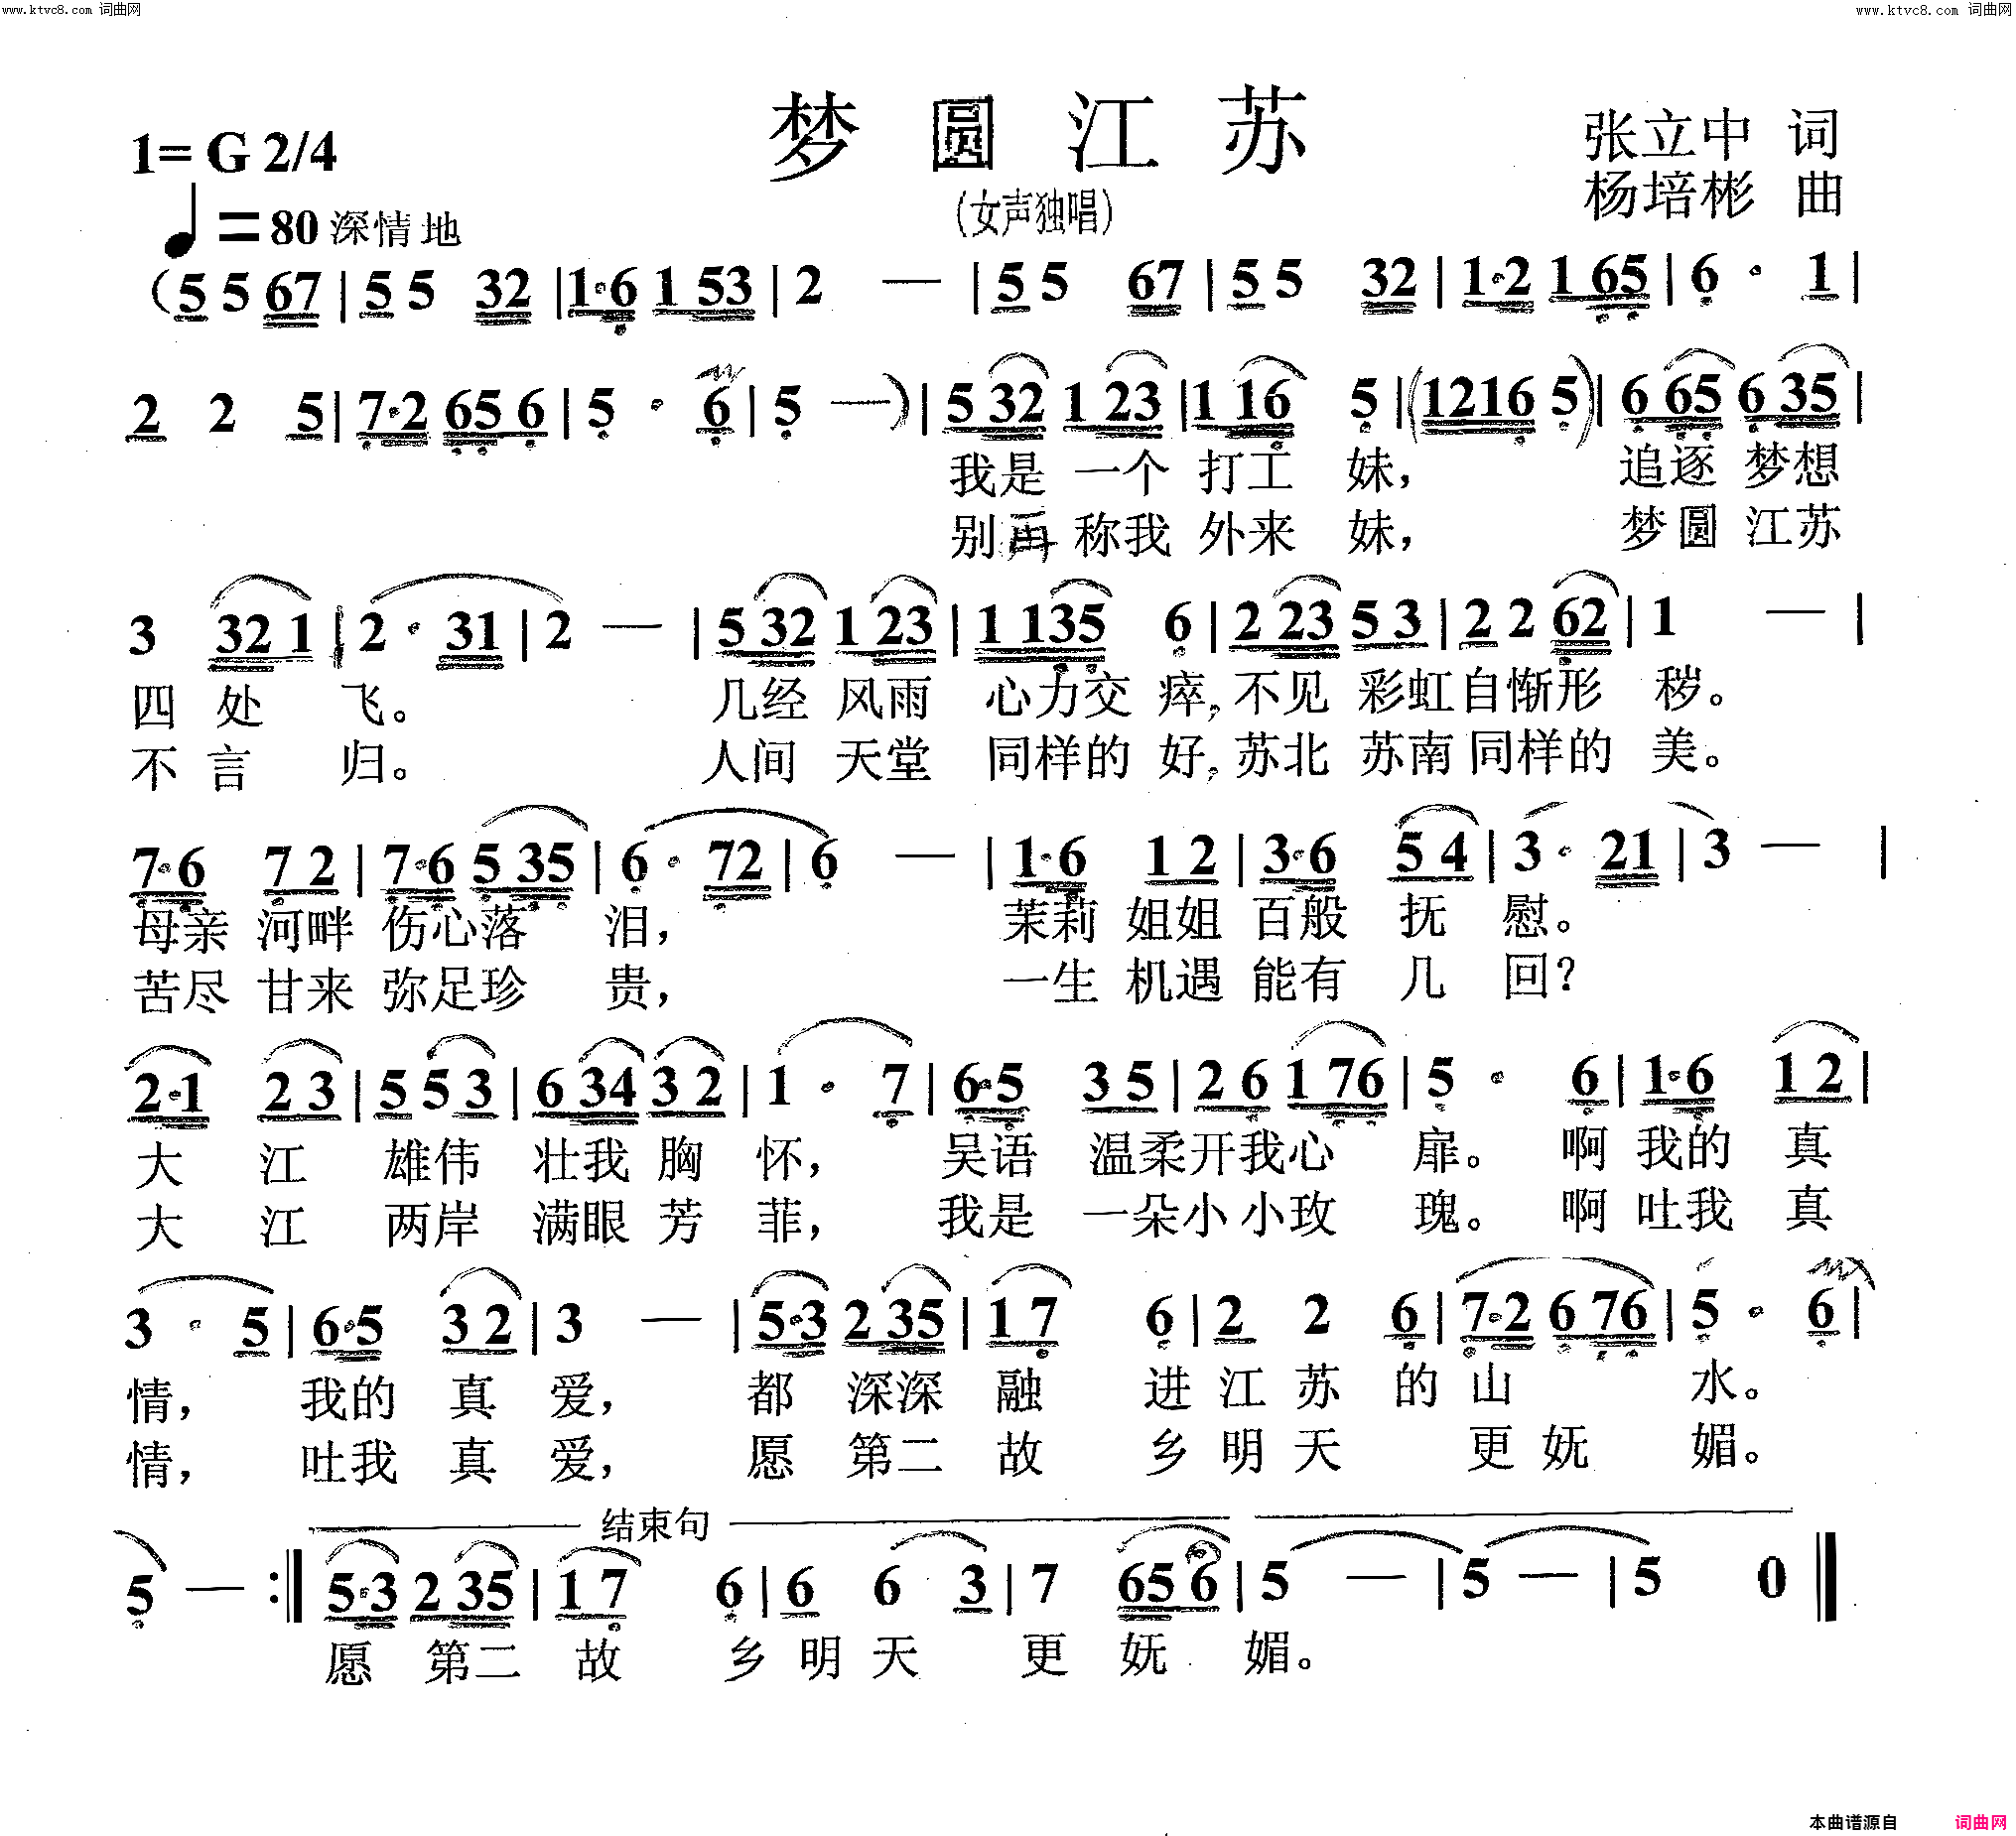 www.ktvc8.com 词曲网 www.ktvc8.com 词曲网
梦圆江苏
1= G 2/4 张立中 词
(女声独唱) 杨培彬 曲
♩=80 深情地
(5 5 67 | 5 5 32 | 1·6 1 53 | 2 — | 5 5 67 | 5 5 32 | 1·2 1 65 | 6 · 1 |
2 2 5 | 7·2 65 6 | 5 · 6 | 5 — ) | 5 32 1 23 | 1 16 5 | (1216 5) | 6 65 6 35 |
我是 一个 打工 妹, 追逐 梦想
别再 称我 外来 妹, 梦圆 江苏
3 32 1 | 2 · 31 | 2 — | 5 32 1 23 | 1 135 6 | 2 23 5 3 | 2 2 62 | 1 — |
四 处 飞。 几经 风雨 心力交 瘁, 不见 彩虹自惭形 秽。
不 言 归。 人间 天堂 同样的 好, 苏北 苏南同样的 美。
7·6 7 2 | 7·6 5 35 | 6 · 72 | 6 — | 1·6 1 2 | 3·6 5 4 | 3 · 21 | 3 — |
母亲 河畔 伤心落 泪, 茉莉 姐姐 百般 抚 慰。
苦尽 甘来 弥足珍 贵, 一生 机遇 能有 几 回?
2·1 2 3 | 5 5 3 | 6 34 3 2 | 1 · 7 | 6·5 3 5 | 2 6 1 76 | 5 · 6 | 1·6 1 2 |
大 江 雄伟 壮我 胸 怀, 吴语 温柔开我心 扉。 啊 我的 真
大 江 两岸 满眼 芳 菲, 我是 一朵小小玫 瑰。 啊 吐我 真
3 · 5 | 6·5 3 2 | 3 — | 5·3 2 35 | 1 7 6 | 2 2 6 | 7·2 6 76 | 5 · 6 |
情, 我的 真 爱, 都 深深 融 进 江 苏 的 山 水。
情, 吐我 真 爱, 愿 第二 故 乡 明 天 更 妩 媚。
结束句
5 — :‖ 5·3 2 35 | 1 7 6 | 6 6 3 | 7 65 6 | 5 — | 5 — | 5 0 ‖
愿 第二 故 乡 明 天 更 妩 媚。
本曲谱源自 词曲网